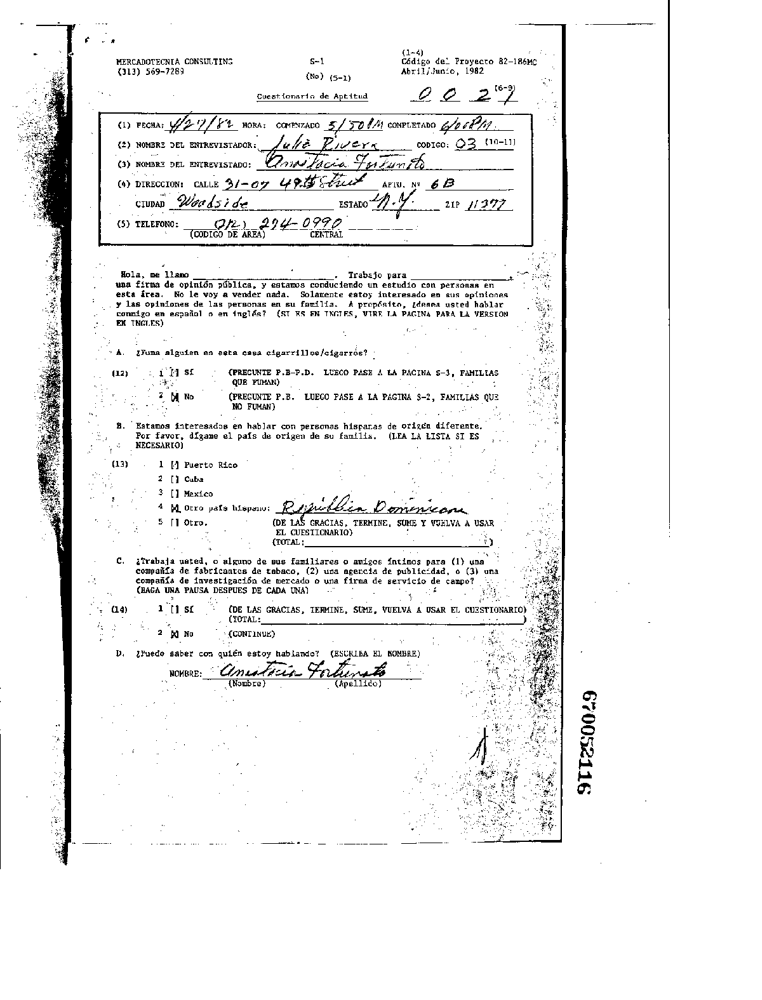 (1-4)
MERCADOTECNIA CONSULTING S-1 Código del Proyecto 82-186MC
(313) 569-7289 (No) (5-1) Abril/Junio, 1982
Cuestionario de Aptitud 0 0 2 7 (6-9)
(1) FECHA: 4/27/82 HORA: COMENZADO 5/50 PM COMPLETADO 6/00 PM.
(2) NOMBRE DEL ENTREVISTADOR: Julia Rivera CODIGO: 03 (10-11)
(3) NOMBRE DEL ENTREVISTADO: Anastacia Fortunato
(4) DIRECCION: CALLE 31-07 49th Street APTO. Nº 6B
CIUDAD Woodside ESTADO N.Y. ZIP 11377
(5) TELEFONO: (212) 274-0990
(CODIGO DE AREA) CENTRAL
Hola, me llamo . Trabajo para ,
una firma de opinión pública, y estamos conduciendo un estudio con personas en
esta área. No le voy a vender nada. Solamente estoy interesado en sus opiniones
y las opiniones de las personas en su familia. A propósito, ¿desea usted hablar
conmigo en español o en inglés? (SI ES EN INGLES, VIRE LA PAGINA PARA LA VERSION
EN INGLES)
A. ¿Fuma alguien en esta casa cigarrillos/cigarros?
(12) 1 [] Sí (PREGUNTE P.B-P.D. LUEGO PASE A LA PAGINA S-3, FAMILIAS
QUE FUMAN)
2 [X] No (PREGUNTE P.B. LUEGO PASE A LA PAGINA S-2, FAMILIAS QUE
NO FUMAN)
B. Estamos interesados en hablar con personas hispanas de origen diferente.
Por favor, dígame el país de origen de su familia. (LEA LA LISTA SI ES
NECESARIO)
(13) 1 [] Puerto Rico
2 [] Cuba
3 [] Mexico
4 [X] Otro país hispano: República Dominicana
5 [] Otro. (DE LAS GRACIAS, TERMINE, SUME Y VUELVA A USAR
EL CUESTIONARIO)
(TOTAL: )
C. ¿Trabaja usted, o alguno de sus familiares o amigos íntimos para (1) una
compañía de fabricantes de tabaco, (2) una agencia de publicidad, o (3) una
compañía de investigación de mercado o una firma de servicio de campo?
(HAGA UNA PAUSA DESPUES DE CADA UNA)
(14) 1 [] Sí (DE LAS GRACIAS, TERMINE, SUME, VUELVA A USAR EL CUESTIONARIO)
(TOTAL: )
2 [X] No (CONTINUE)
D. ¿Puedo saber con quién estoy hablando? (ESCRIBA EL NOMBRE)
NOMBRE: Anastacia Fortunato
(Nombre) (Apellido)
670052116